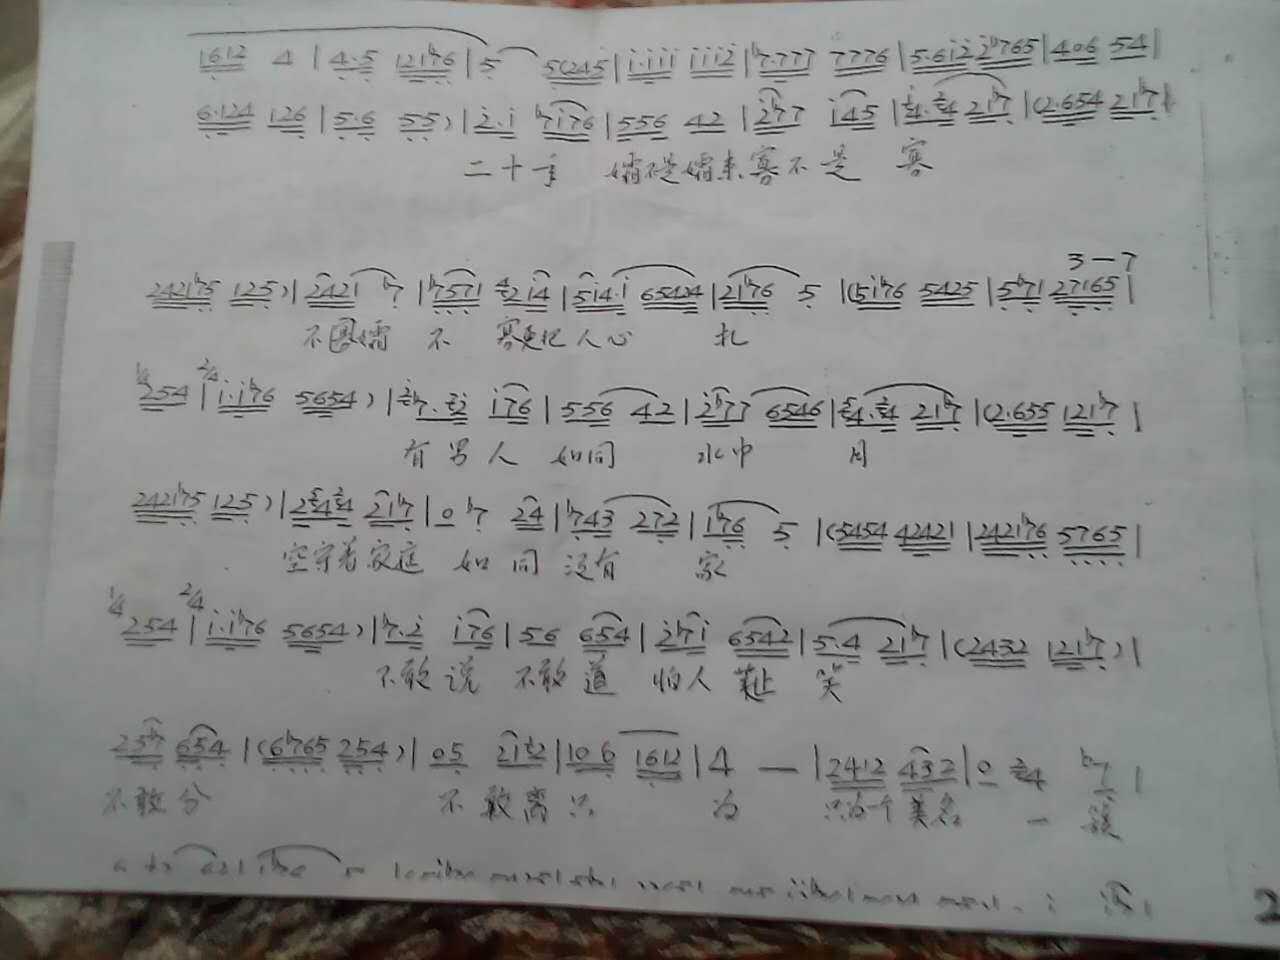 1612 4 | 4.5 121♭76 | 5 5(245 | i.iii iiii2 | ♭7.777 7776 | 5.6i2 2♭765 | 406 54 |
6.124 126 | 5.6 55) | 2.i ♭7i76 | 556 42 | 2♭77 i45 | 4.4 21♭7 | (2.654 21♭7 |
二十年 孀不是孀来寡不是 寡
3—7
2421♭75 125) | 2421 ♭7 | ♭7571 214 | 514.i 65424 | 21♭76 5 | (5i♭76 5425 | 5♭71 27165 |
不 孀 不 寡 人心 扎
1/4 254 | 2/4 i.i♭76 5654) | ♭7.2 i76 | 556 42 | 2♭77 6546 | 4.4 21♭7 | (2.655 121♭7 |
有男人 如同 水中 月
2421♭75 125) | 244 21♭7 | 0 ♭7 24 | ♭743 272 | 1♭76 5 | (5454 42421 | 2421♭76 5765 |
空守着家庭 如同没有 家
1/4 254 | 2/4 i.i♭76 5654) | ♭7.2 i76 | 56 654 | 2♭7i 6542 | 5.4 21♭7 | (2432 121♭7) |
不敢说 不敢道 怕人 耻 笑
25♭7 654 | (6♭765 254) | 05 212 | 106 1612 | 4 — | 2412 432 | 0 4 ♭7 |
不敢分 不敢离只 为 只为个美名 一
2